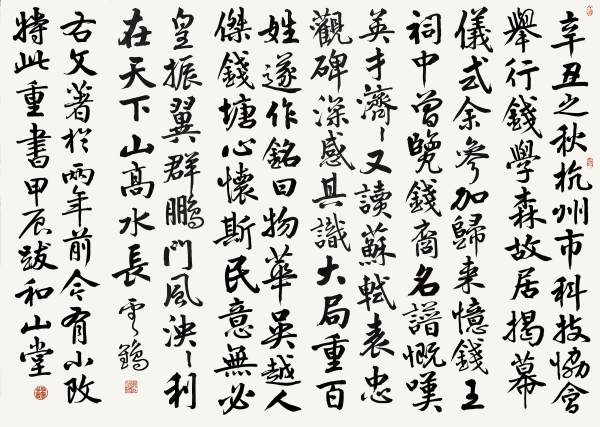 辛丑之秋杭州市科技协會
舉行錢學森故居揭幕
儀式余參加歸来憶錢王
祠中曾覽錢裔名譜慨嘆
英才濟濟又讀蘇軾表忠
觀碑深感其識大局重百
姓遂作銘曰物華吳越人
傑錢塘心懷斯民意無必
皇振翼群鵬門風泱泱利
在天下山高水長 雲鶴
右文著於兩年前今有小改
特此重書甲辰跋和山堂